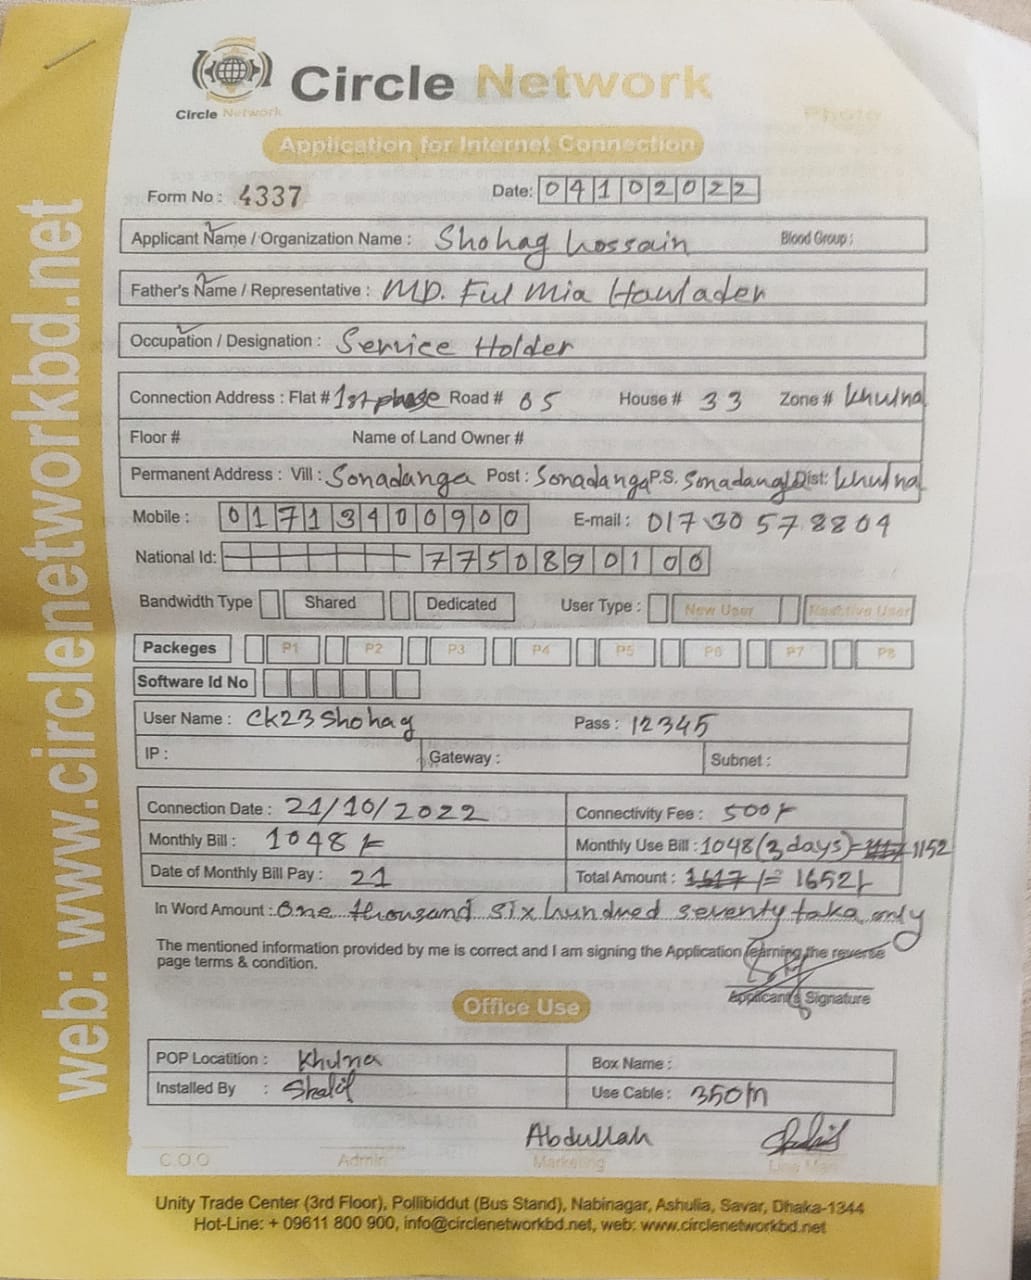 Circle Network
Circle Network
Photo
Application for Internet Connection
Form No : 4337
Date: 04102022
Applicant Name / Organization Name : Shohag hossain Blood Group :
Father's Name / Representative : MD. Ful Mia Howlader
Occupation / Designation : Service Holder
Connection Address : Flat # 1st phase Road # 05 House # 33 Zone # Khulna
Floor # Name of Land Owner #
Permanent Address : Vill : Sonadanga Post : Sonadanga P.S. Sonadanga Dist: Khulna
Mobile : 01713400900 E-mail : 01730578804
National Id: 7750890100
Bandwidth Type Shared Dedicated User Type : New User Reactive User
Packeges P1 P2 P3 P4 P5 P6 P7 P8
Software Id No
User Name : Ck23Shohag Pass : 12345
IP : Gateway : Subnet :
Connection Date : 21/10/2022 Connectivity Fee : 500/-
Monthly Bill : 1048/- Monthly Use Bill : 1048 (3 days)= 1152
Date of Monthly Bill Pay : 21 Total Amount : 1617/= 1652/-
In Word Amount : One thousand six hundred seventy taka only
The mentioned information provided by me is correct and I am signing the Application learning the reverse
page terms & condition.
Applicant's Signature
Office Use
POP Locatition : Khulna Box Name :
Installed By : Shakil Use Cable : 350m
Abdullah
C.O.O Admin Marketing Line Man
Unity Trade Center (3rd Floor), Pollibiddut (Bus Stand), Nabinagar, Ashulia, Savar, Dhaka-1344
Hot-Line: + 09611 800 900, info@circlenetworkbd.net, web: www.circlenetworkbd.net
web: www.circlenetworkbd.net